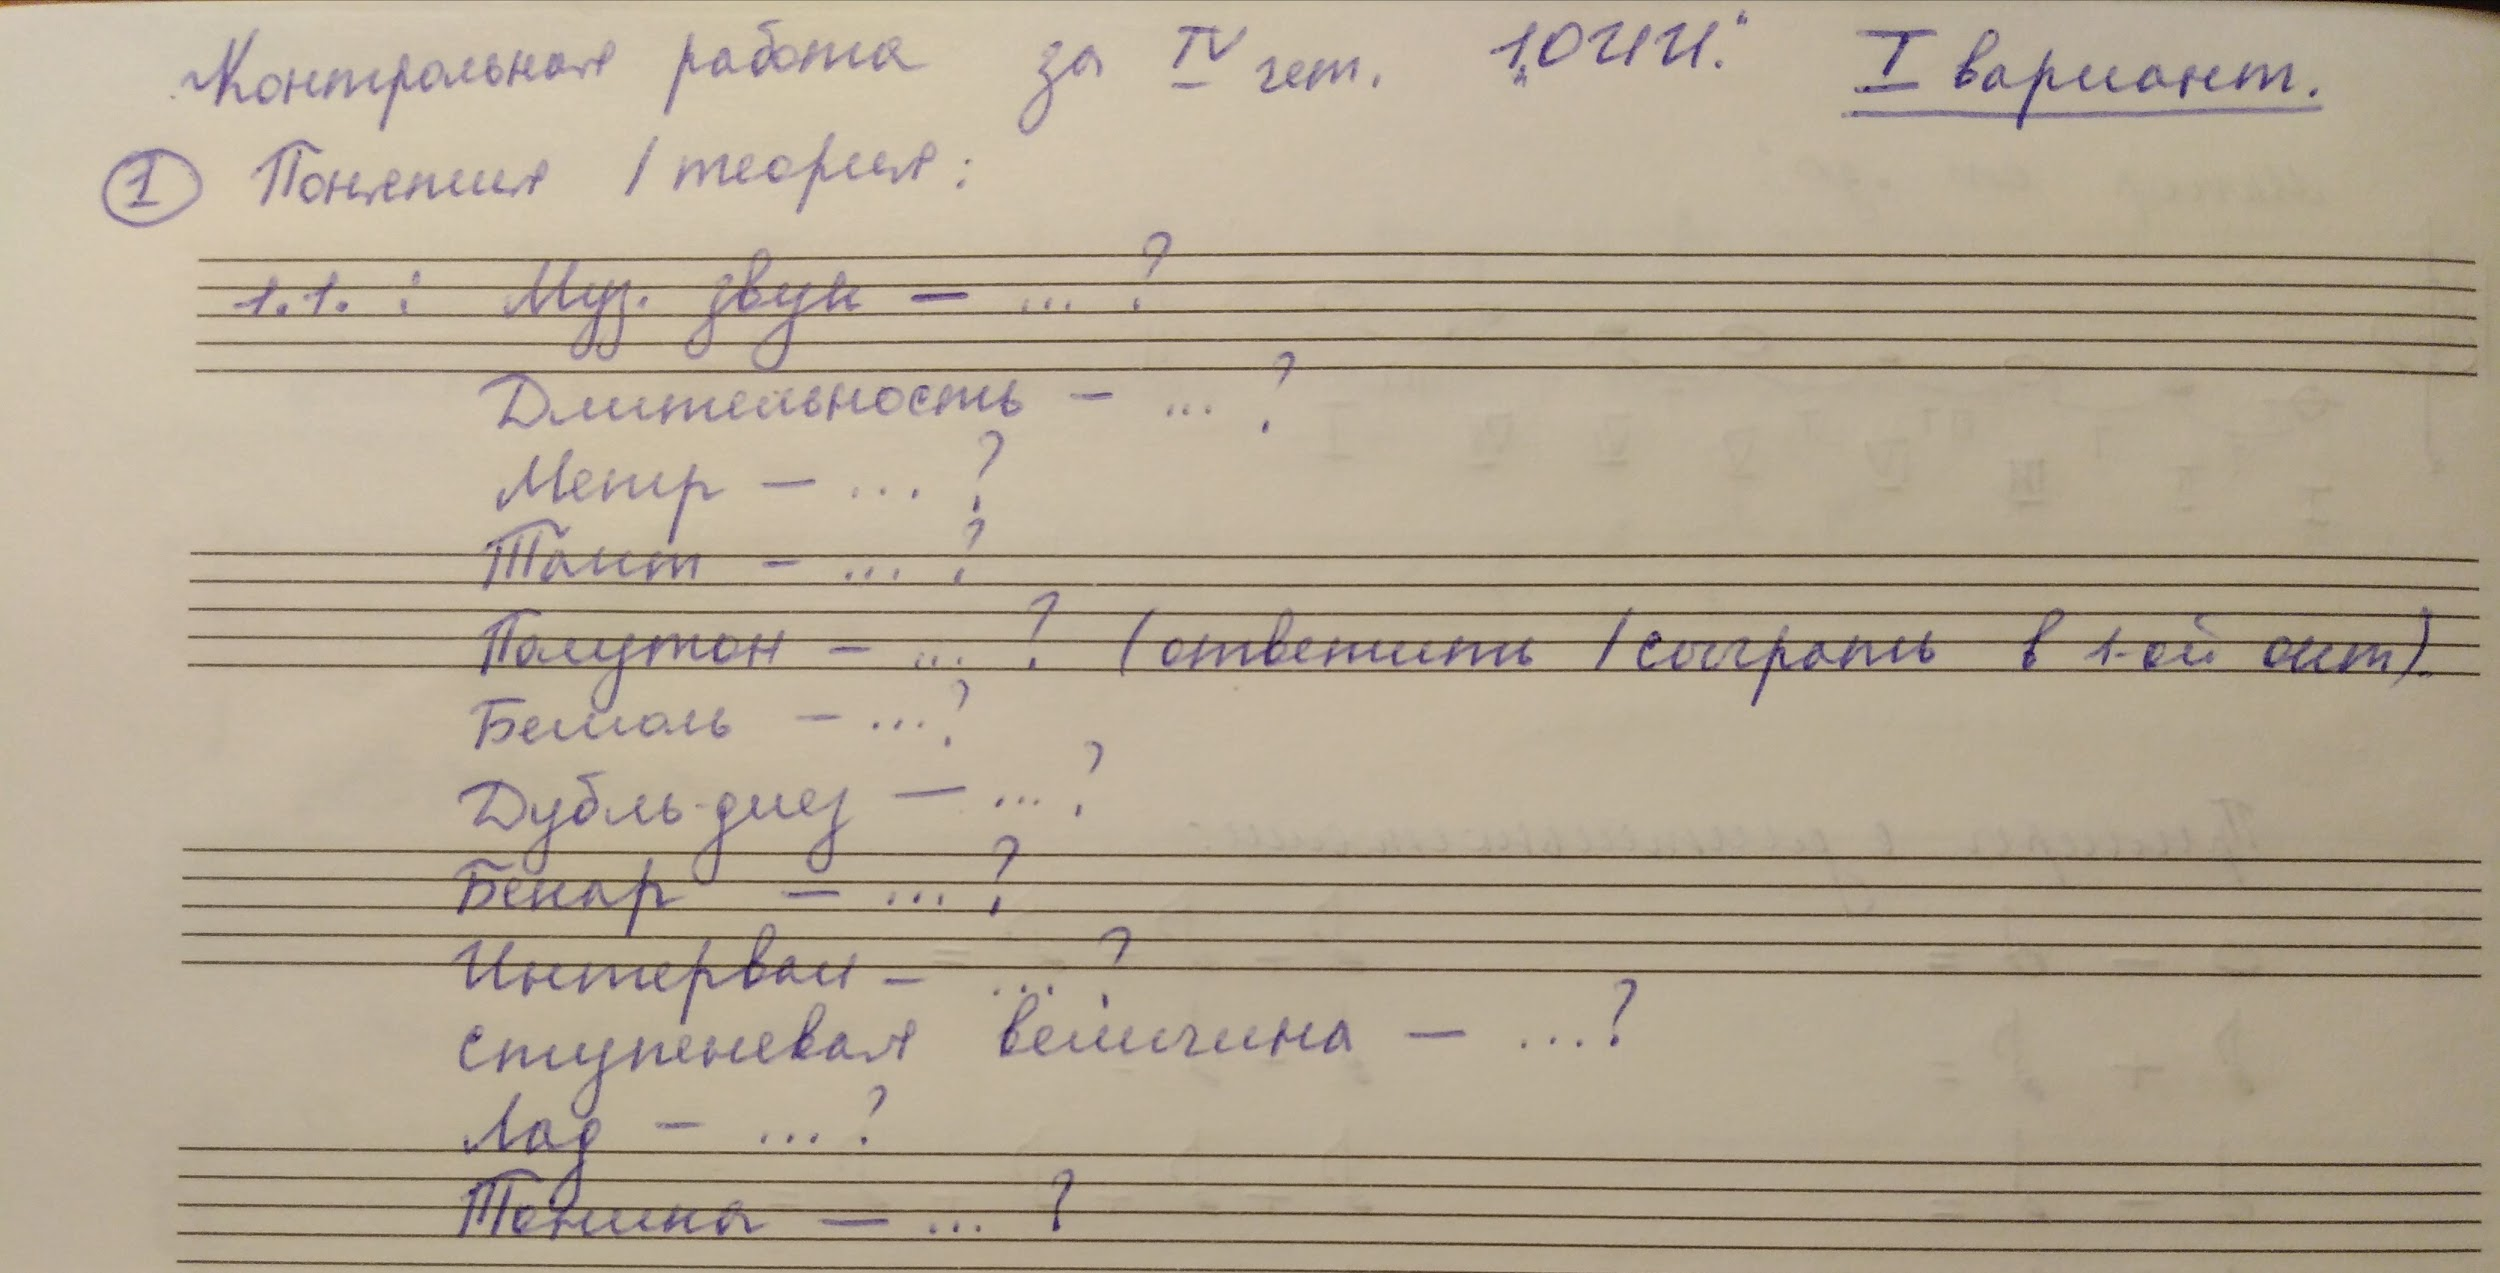 Контрольная работа за IV чет. I вариант.
1 Понятия / теория:
1.1. : Муз. звук – ... ?
Длительность – ... ?
Метр – ... ?
Такт – ... ?
Полутон – ... ? (ответить / сыграть в 1-ой окт).
Бемоль – ... ?
Дубль-диез – ... ?
Бекар – ... ?
Интервал – ... ?
ступеневая величина – ... ?
Лад – ... ?
Тоника – ... ?